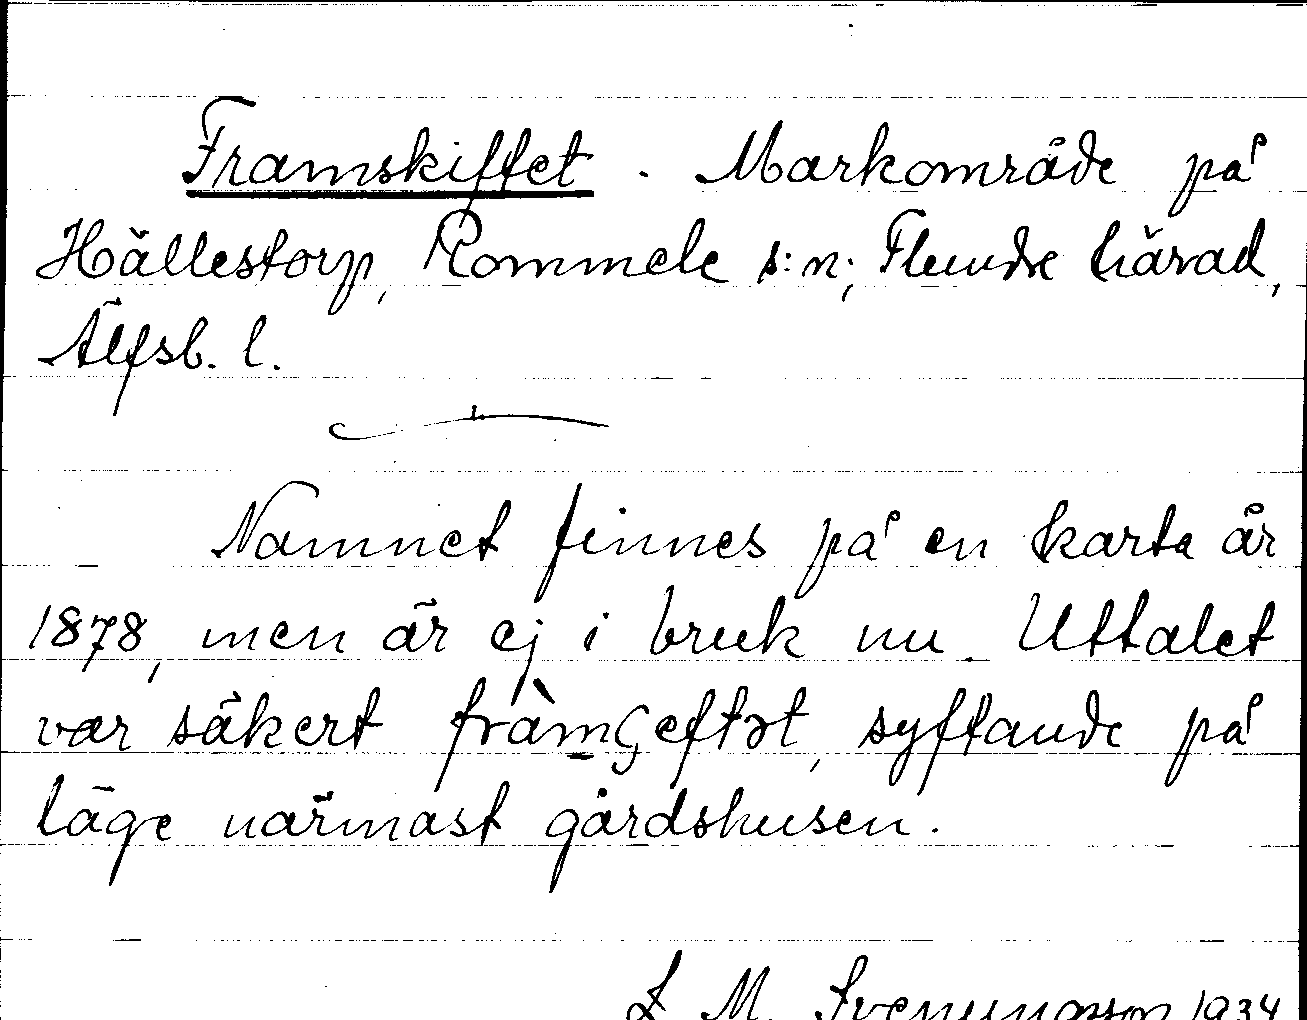 Framskiffet. Markområde på
Hällestorp, Rommele s:n; Flundre härad,
Älfsb. l.
Namnet finnes på en karta år
1878, men är ej i bruk nu. Uttalet
var säkert fràmʂeftət, syftande på
läge närmast gårdshusen.
L M. Svenungsson 1934